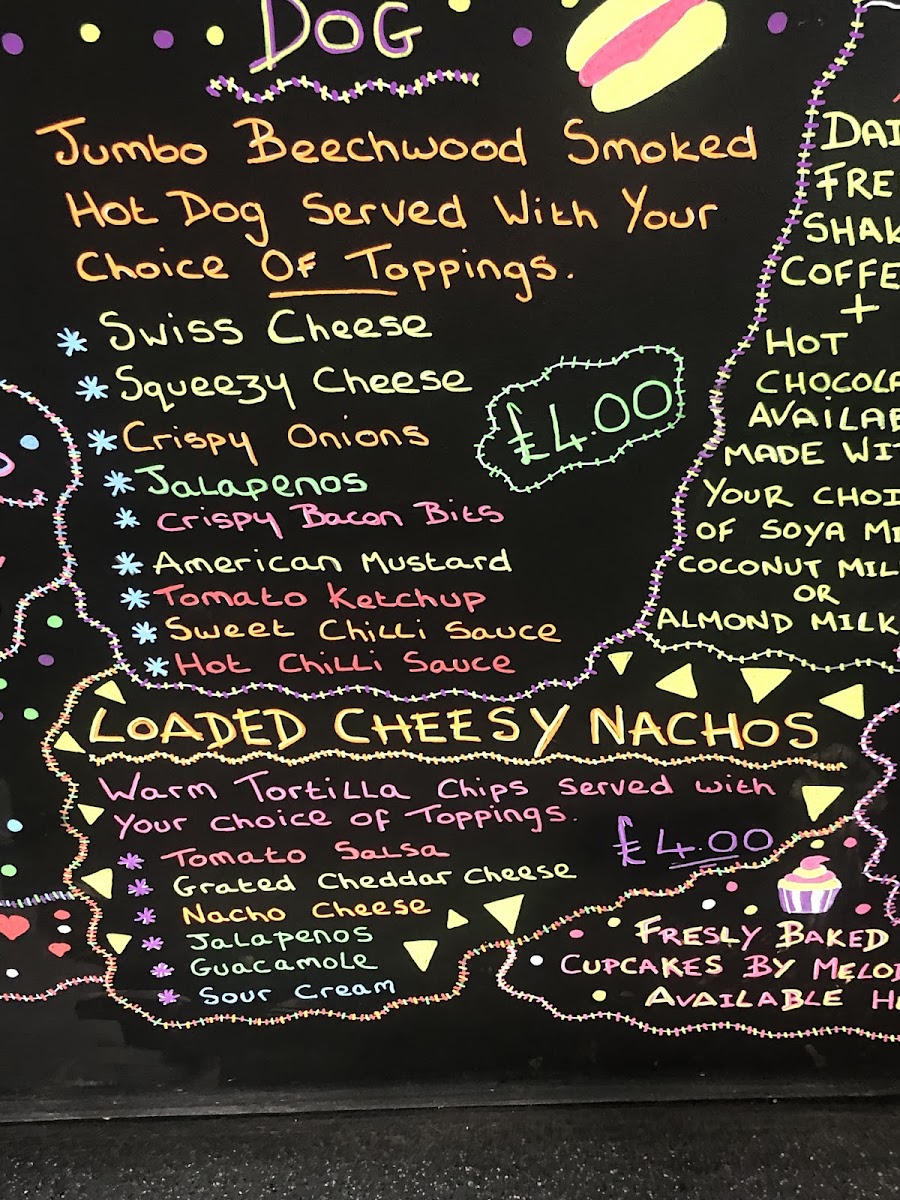 DOG
Jumbo Beechwood Smoked
Hot Dog Served With Your
Choice Of Toppings.
* Swiss Cheese
* Squeezy Cheese
* Crispy Onions
* Jalapenos
* Crispy Bacon Bits
* American Mustard
* Tomato Ketchup
* Sweet Chilli Sauce
* Hot Chilli Sauce
£4.00
LOADED CHEESY NACHOS
Warm Tortilla Chips Served with
Your Choice of Toppings.
£4.00
* Tomato Salsa
* Grated Cheddar Cheese
* Nacho Cheese
* Jalapenos
* Guacamole
* Sour Cream
DAI
FRE
SHAK
COFFE
+
HOT
CHOCOLA
AVAILAB
MADE WIT
YOUR CHOI
OF SOYA MI
COCONUT MIL
OR
ALMOND MILK
FRESLY BAKED
CUPCAKES BY MELO
AVAILABLE H